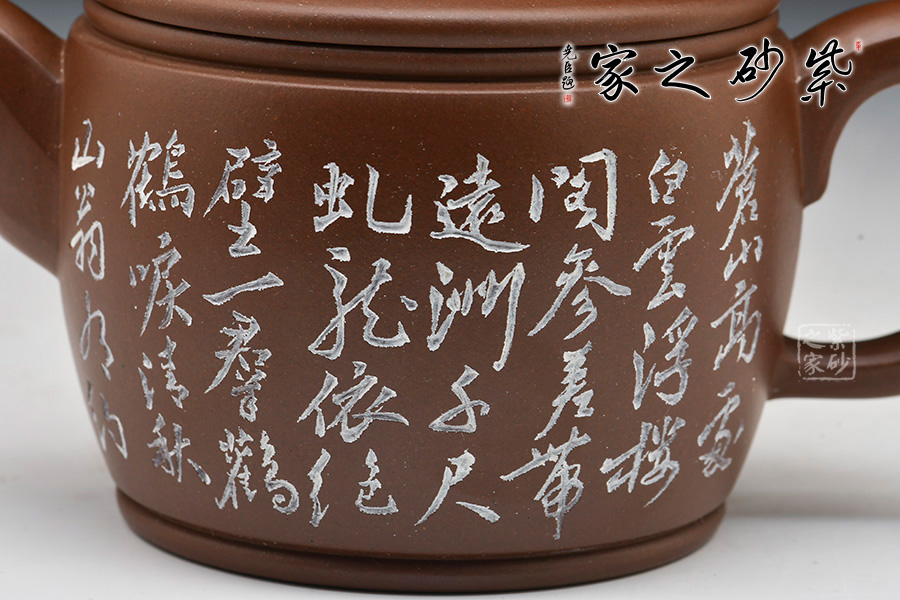 紫砂之家
蒼山高處
白雲浮樓
閣參差帶
遠洲千尺
虬龍依絕
壁一羣鸛
鶴唳清秋
山翁
紫砂之家